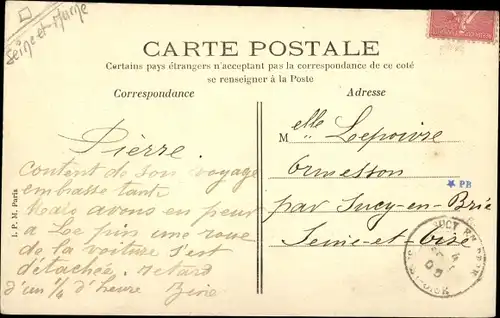 Seine-et-Marne
CARTE POSTALE
Certains pays étrangers n'acceptant pas la correspondance de ce coté
se renseigner à la Poste
Correspondance
Adresse
Pierre
content de son voyage
embrasse tante
Mais avons eu peur
a Le pin une roue
de la voiture s'est
détachée, retard
d'un ¼ d'heure
Melle Lepoivre
Ormesson
par Sucy-en-Brie
Seine-et-Oise
I. P. M. Paris
* PB
SUCY EN BRIE